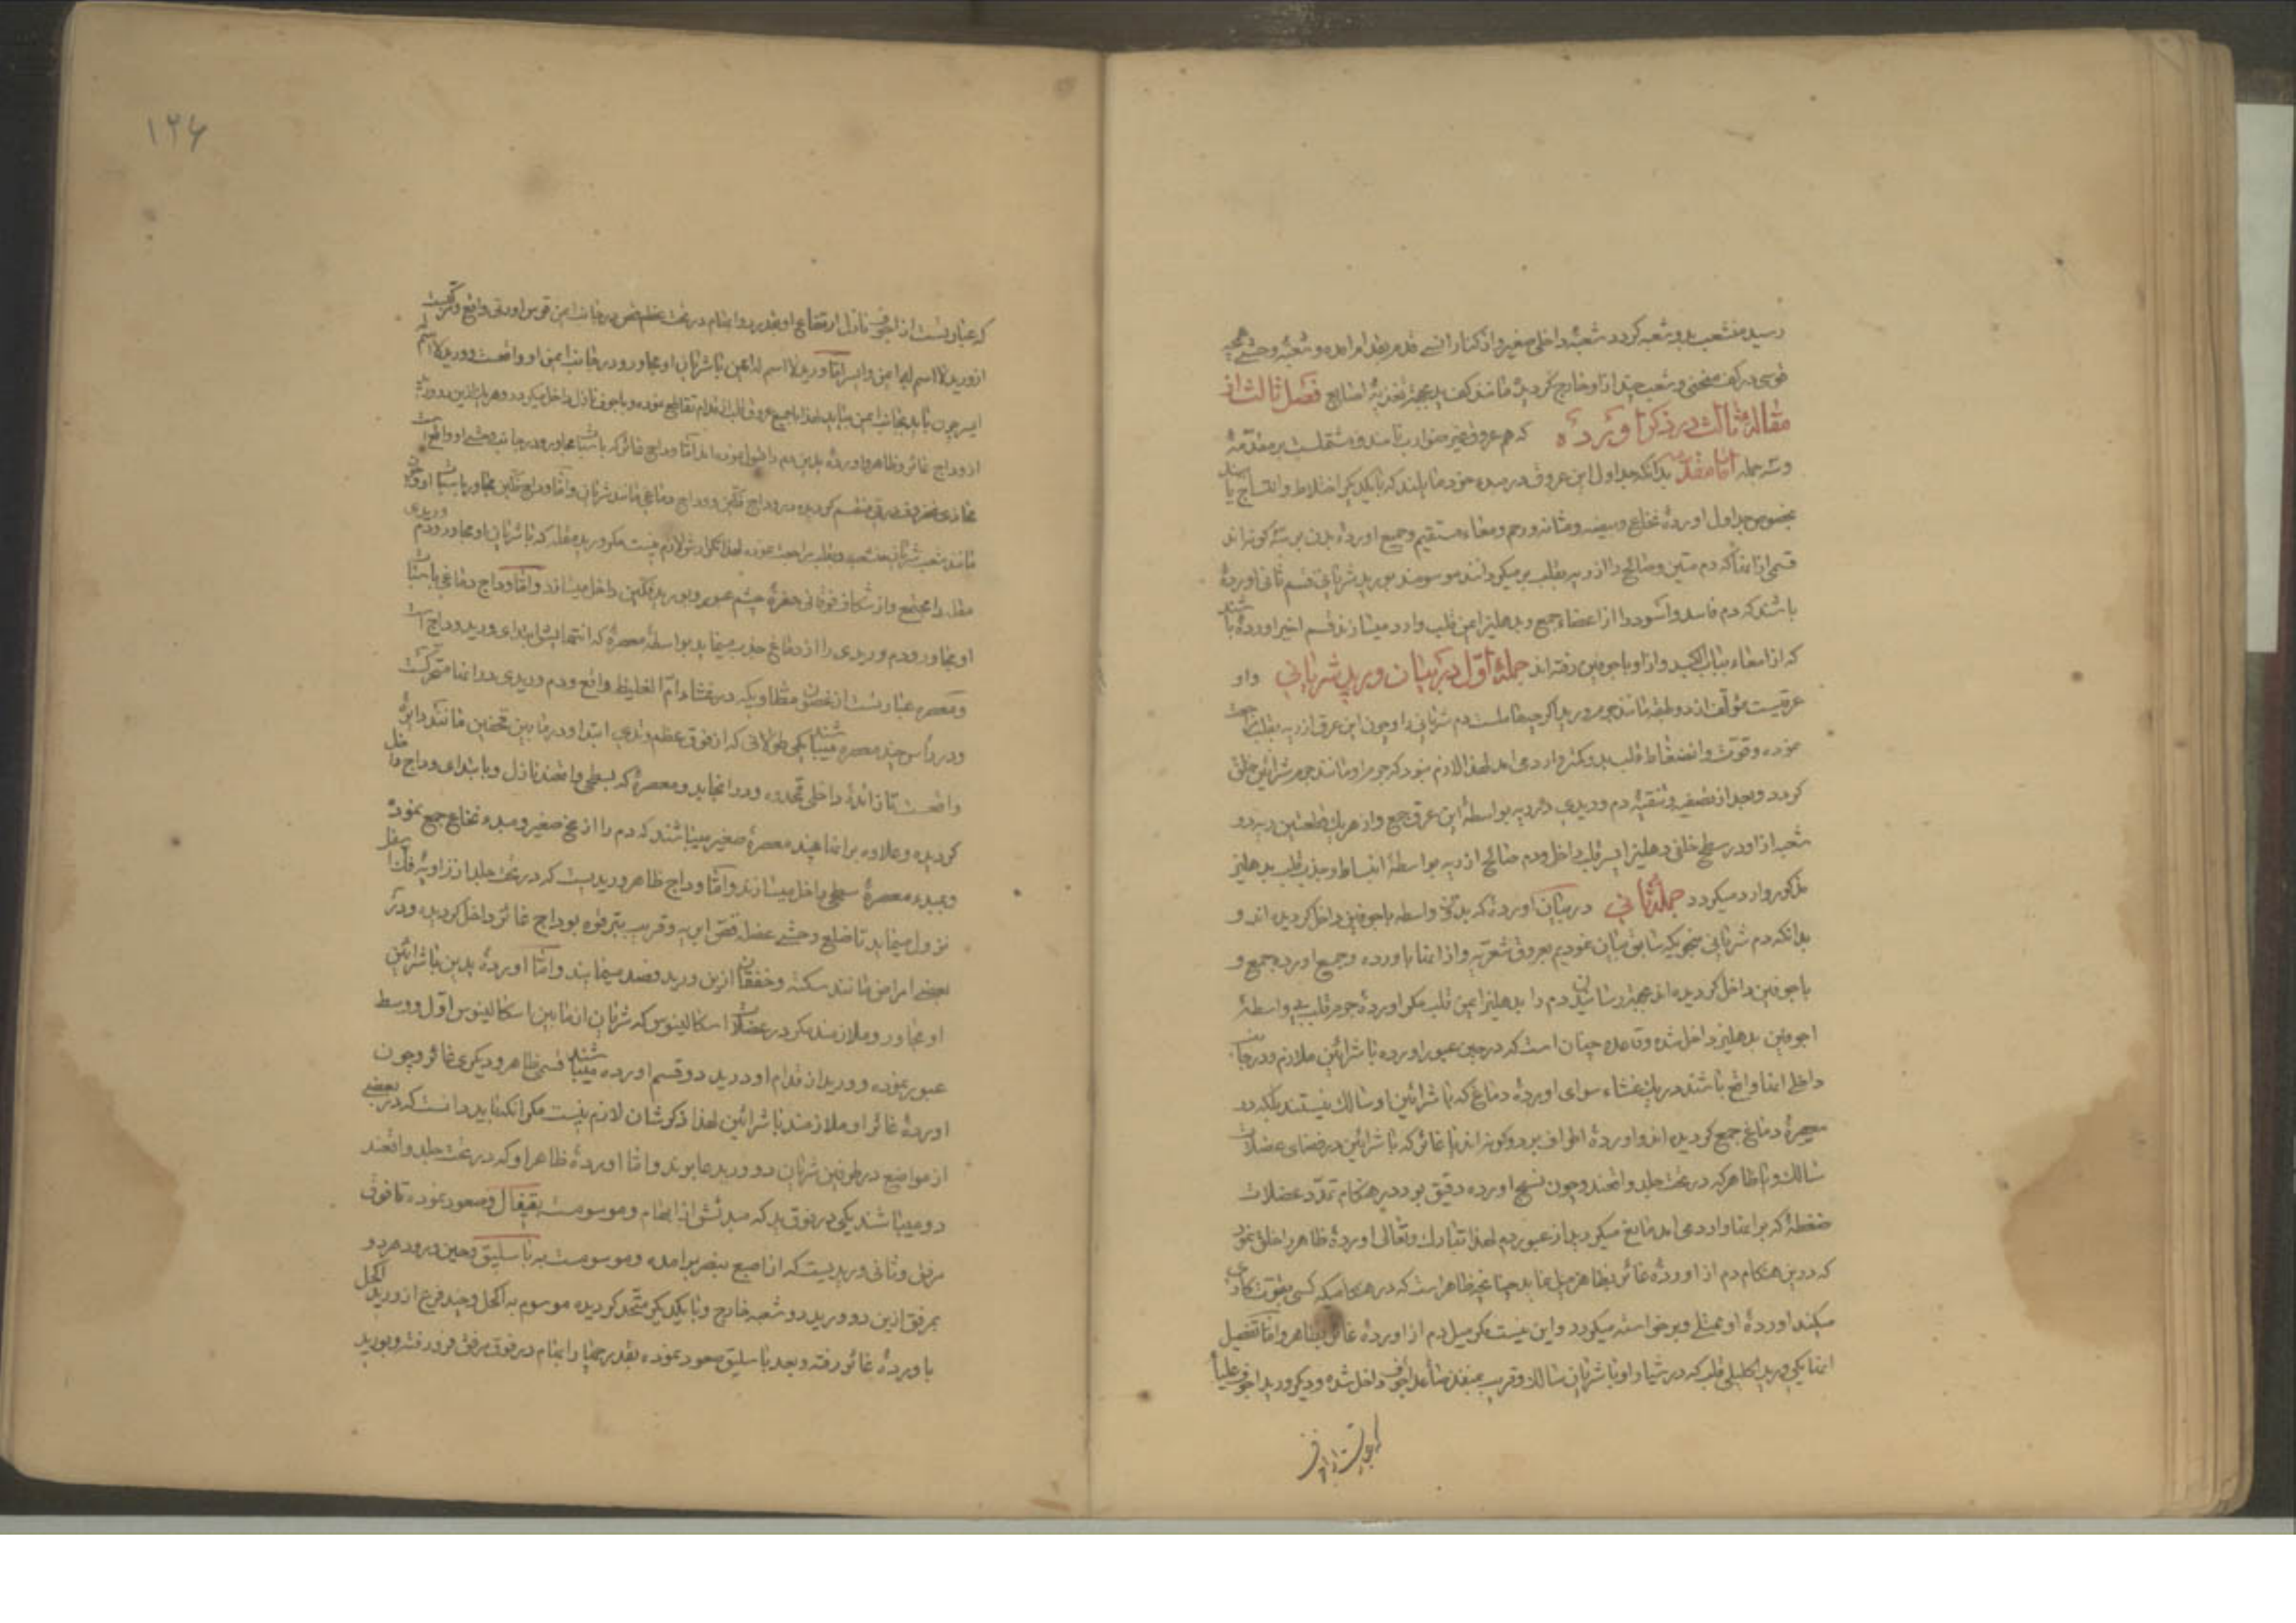 رسید منشعب بدو شعبه کردد شعبهٔ داخلی صغیر و از کنار انسے قدم بقدام امده و شعبهٔ وحشے
قوسی در کف منحنی و شعب چند از او خارج کردیدهٔ مانند کف ید بجهة تغذیهٔ اصابع فصل ثالث از
مقالهٔ ثالث در ذکر اوردهٔ که هم عروق غیر ضوارب نامند و مشتملست بر مقدّمهٔ
و سه جمله امّا مقدمه بدانکه جداول این عروق در مبدء خود میباشند که بایکدیکر اختلاط و انتساج
بخصوص جداول اوردهٔ نخاع و بیضه و مثانه و رحم و معاء مستقیم و جمیع اوردهٔ بدن بر سه کونه اند
قسمی از انها که دم متین و صالح را از ریه بقلب بر میکردانند موسومند بورید شریانی قسم ثانی اوردهٔ
باشند که دم فاسد و اسود را از اعضاء جمع و بدهلیز ایمن قلب وارد میسازند قسم اخیر اوردهٔ باشند
که از امعاء بباب الکبد و از او باجوفین رفته اند جملهٔ اوّل در بیان ورید شریانی و او
عرقیست مؤلّف از دو طبقه مانند جرم ورید اکرچه حاملست دم شریانی را و چون این عرق از ریه بقلب
نموده و قوّت و انضغاط قلب بدو کمتر وارد می اید لهذا لازم نبود که جرم او مانند جرم شرائین خلق
کردد و بعد از تصفیه و تنقیهٔ دم وریدی در ریه بواسطهٔ این عرق جمع و از هر یک قطعتین ریه دو
شعب از او در سطح خلفی دهلیز ایسر قلب داخل و دم صالح از ریه بواسطهٔ انبساط و جذب قلب بدهلیز
مذکور وارد میکردد جملهٔ ثانی در بیان اوردهٔ که بدون واسطه باجوفین داخل کردیده اند و
بدانکه دم شریانی بنحویکه سابق بیان نمودیم بعروق شعریّه و از انها باورده و جمیع اورده جمع و
باجوفین داخل کردیده اند بجهة رسانیدن دم را بدهلیز ایمن قلب مکر اوردهٔ جرم قلب که بی واسطهٔ
اجوفین بدهلیز داخل شده و قاعده چنان است که در حین عبور اورده با شرائین ملازم و در جانب
داخلے انها واقع باشند در یک غشاء سوای اوردهٔ دماغ که با شرائین او سالک نیستند بلکه در
معصرهٔ دماغ جمع کردیده اند و اوردهٔ اطراف بر دو کونه اند یا غائر که با شرائین در فضای عضلات
سالک و یا ظاهر که در تحت جلد واقعند و چون نسج اورده دقیق بود در هنکام تمدّد عضلات
ضغطهٔ که بر انها وارد می اید مانع میکردید از عبور دم لهذا تبارک و تعالی اوردهٔ ظاهر را خلق نمود
که در این هنکام دم از اوردهٔ غائر بظاهر میل نماید چنانچه ظاهر است که در هنکامیکه کسی بقوت کاری
میکند اوردهٔ او ممتلے و برخواسته میکردد و این نیست مکر میل دم از اوردهٔ غائر بظاهر و امّا تفصیل
انها یکی ورید اکلیلی قلب که در شیار او با شریان سالک و قریب بمنفذ صاعد اجوف داخل شده و دیکر ورید اجوف علیا
که عبارتست از اجوف
که عبارتست از اجوف نازل ارتفاع او بقدر دو ابهام در تحت عظم قص در جانب ایمن قوس اورتی واقع و مرکّبست
از ورید لا اسم له ایمن و ایسر امّا ورید لا اسم له ایمن با شریان او مجاور و در جانب ایمن او واقعست و ورید لا اسم له
ایسر چون باید بجانب ایمن بیاید لهذا با جمیع عروق قلب از قدام تقاطع نموده و باجوف نازل داخل میکردد و هر یک ازین دو ورید
از وداج غائر و ظاهر و اوردهٔ یدین دم را قبول نموده اند امّا وداج غائر که با سبات مجاور و در جانب وحشے او واقع است
بمحاذی غضروف درقی منقسم کردیده در وداج فکّین و وداج دماغی مانند شریان و امّا وداج فکّین مجاور با سبات او و
مانند شعب شریانی منشعب و بقلب مراجعت نموده لهذا تکرارش لازم نیست مکر ورید مقله که با شریان او مجاور و دم وریدی
مقله را مجتمع و از شکاف فوقانی حفرهٔ چشم عبور و بورید فکّین داخل میسازد و امّا وداج دماغی با سبات
او مجاور و دم وریدی را از دماغ جذب مینماید بواسطهٔ معصرهٔ که انتهایش ابتدای ورید وداج است
و معصره عبارتست از غضون مطاویکه در غشاء امّ الغلیظ واقع و دم وریدی در انها متحرّکست
و در رأس چند معصره میباشند یکی طولانی که از فوق عظم وتدی ابتدا و در مابین قحفین مانند دایرهٔ
واقعست تا زائدهٔ داخلی قمحدوه و در انجا بدو معصرهٔ که بسطی واقعند نازل و بابتدای وداج داخل
کردیده و علاوه بر انها چند معصرهٔ صغیر میباشند که دم را از مخ صغیر و مبدء نخاع جمع نموده
و بمبدء معصرهٔ سطحی داخل میسازند و امّا وداج ظاهر وریدیست که در تحت جلد از زاویهٔ فک اسفل
نزول مینماید تا ضلع وحشے عضله قصّ ابریه و قریب بترقوه بوداج غائر داخل کردیده و در
بعضے امراض مانند سکته و خفقان ازین ورید فصد مینمایند و امّا اوردهٔ یدین با شرائین
او مجاور و ملازمند مکر در عضلات اسکالینوس که شریان از مابین اسکالینوس اوّل و وسط
عبور نموده و ورید از قدام او در ید دو قسم اورده میباشند قسمی ظاهر و دیکری غائر و چون
اوردهٔ غائر او ملازمند با شرائین لهذا ذکرشان لازم نیست مکر انکه باید دانست که در بعضے
از مواضع در طرفین شریان دو ورید عابرند و امّا اوردهٔ ظاهر او که در تحت جلد واقعند
دو میباشند یکی در فوق ید که مبدئش از ابهام و موسومست بقیفال و صعود نموده تا فوق
مرفق و ثانی وریدیست که از اصبع بنصر برامده و موسومست به باسلیق و حین ورود هر دو
بمرفق ازین دو ورید دو شعبه خارج و با یکدیکر متّحد کردیده موسوم به اکحل و چند فرع از ورید اکحل
باوردهٔ غائر رفته و بعد باسلیق صعود نموده بقدر چهار ابهام در فوق مرفق فرو رفته و بورید
۱۲۶